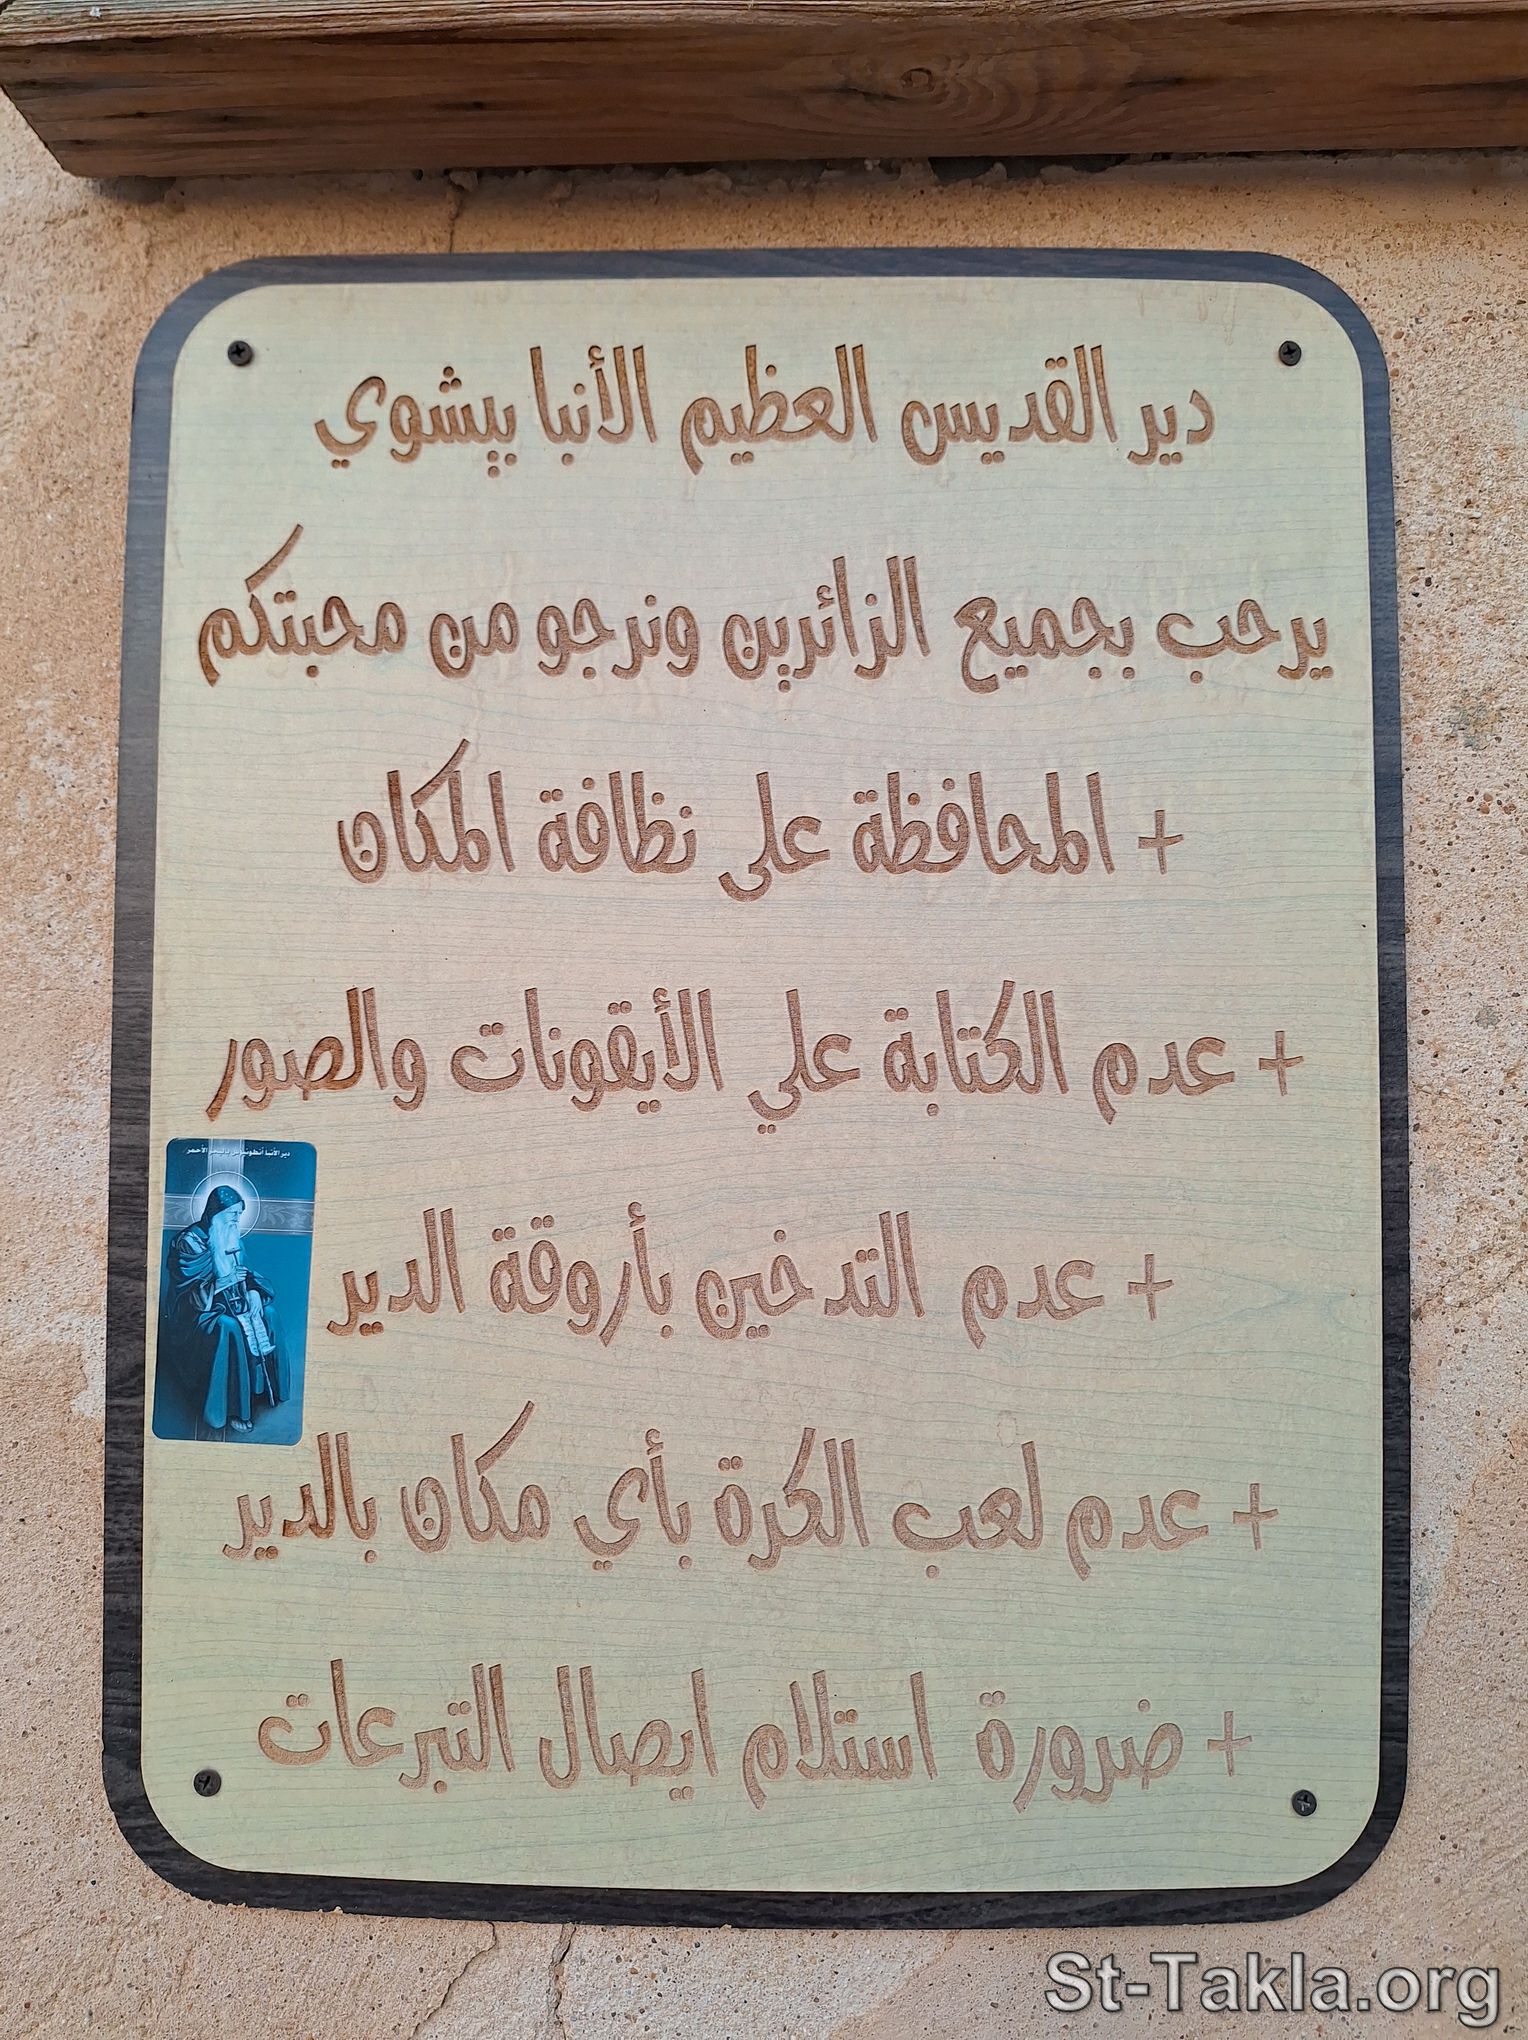 دير القديس العظيم الأنبا بيشوي
يرحب بجميع الزائرين ونرجو من محبتكم
+ المحافظة على نظافة المكان
+ عدم الكتابة علي الأيقونات والصور
دير الأنبا أنطونيوس بالبحر الأحمر
+ عدم التدخين بأروقة الدير
+ عدم لعب الكرة بأي مكان بالدير
+ ضرورة استلام ايصال التبرعات
St-Takla.org